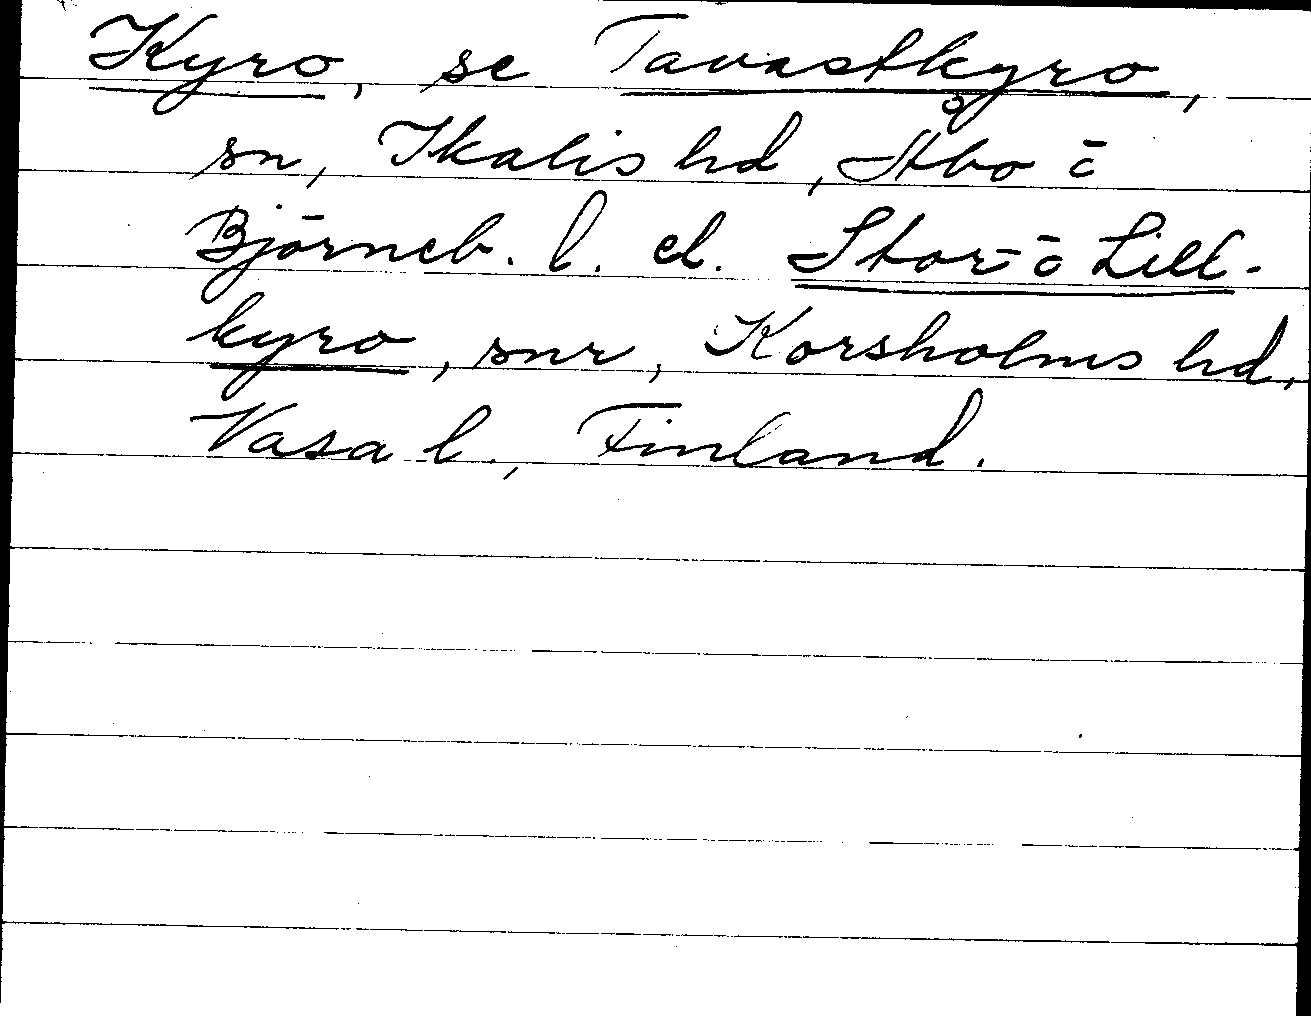 Kyro, se Tavastkyro,
sn, Ikalis hd, Åbo o
Björneb. l. el. Stor- o Lill-
kyro, snr, Korsholms hd,
Vasa l., Finland.